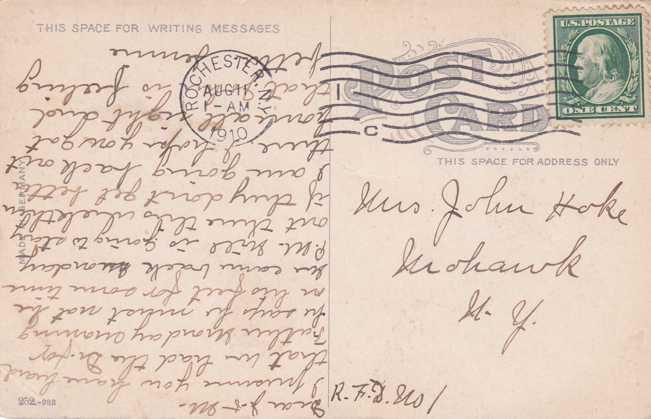 THIS SPACE FOR WRITING MESSAGES
POST
CARD
U.S. POSTAGE
ONE CENT
ROCHESTER, N.Y.
AUG 11
1-AM
1910
1
C
THIS SPACE FOR ADDRESS ONLY
Mrs. John Hoke
Mohawk
N. Y.
R.F.D. No 1
Dear J & M-
I presume you have heard
that we had the Dr. for
Father Monday evening
he says he must not be
on his feet for some time
we came back Monday
P.M. Will is going to stay
out there this week then
if they don't get better
I am going back out
there. I hope you got
home all right and
that is feeling
better Jennie
MADE IN GERMANY
252.-